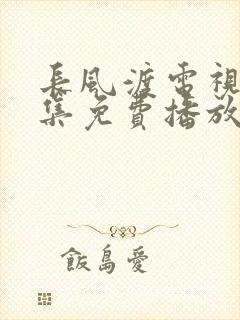 長風渡電視
集免費播放
飯島愛